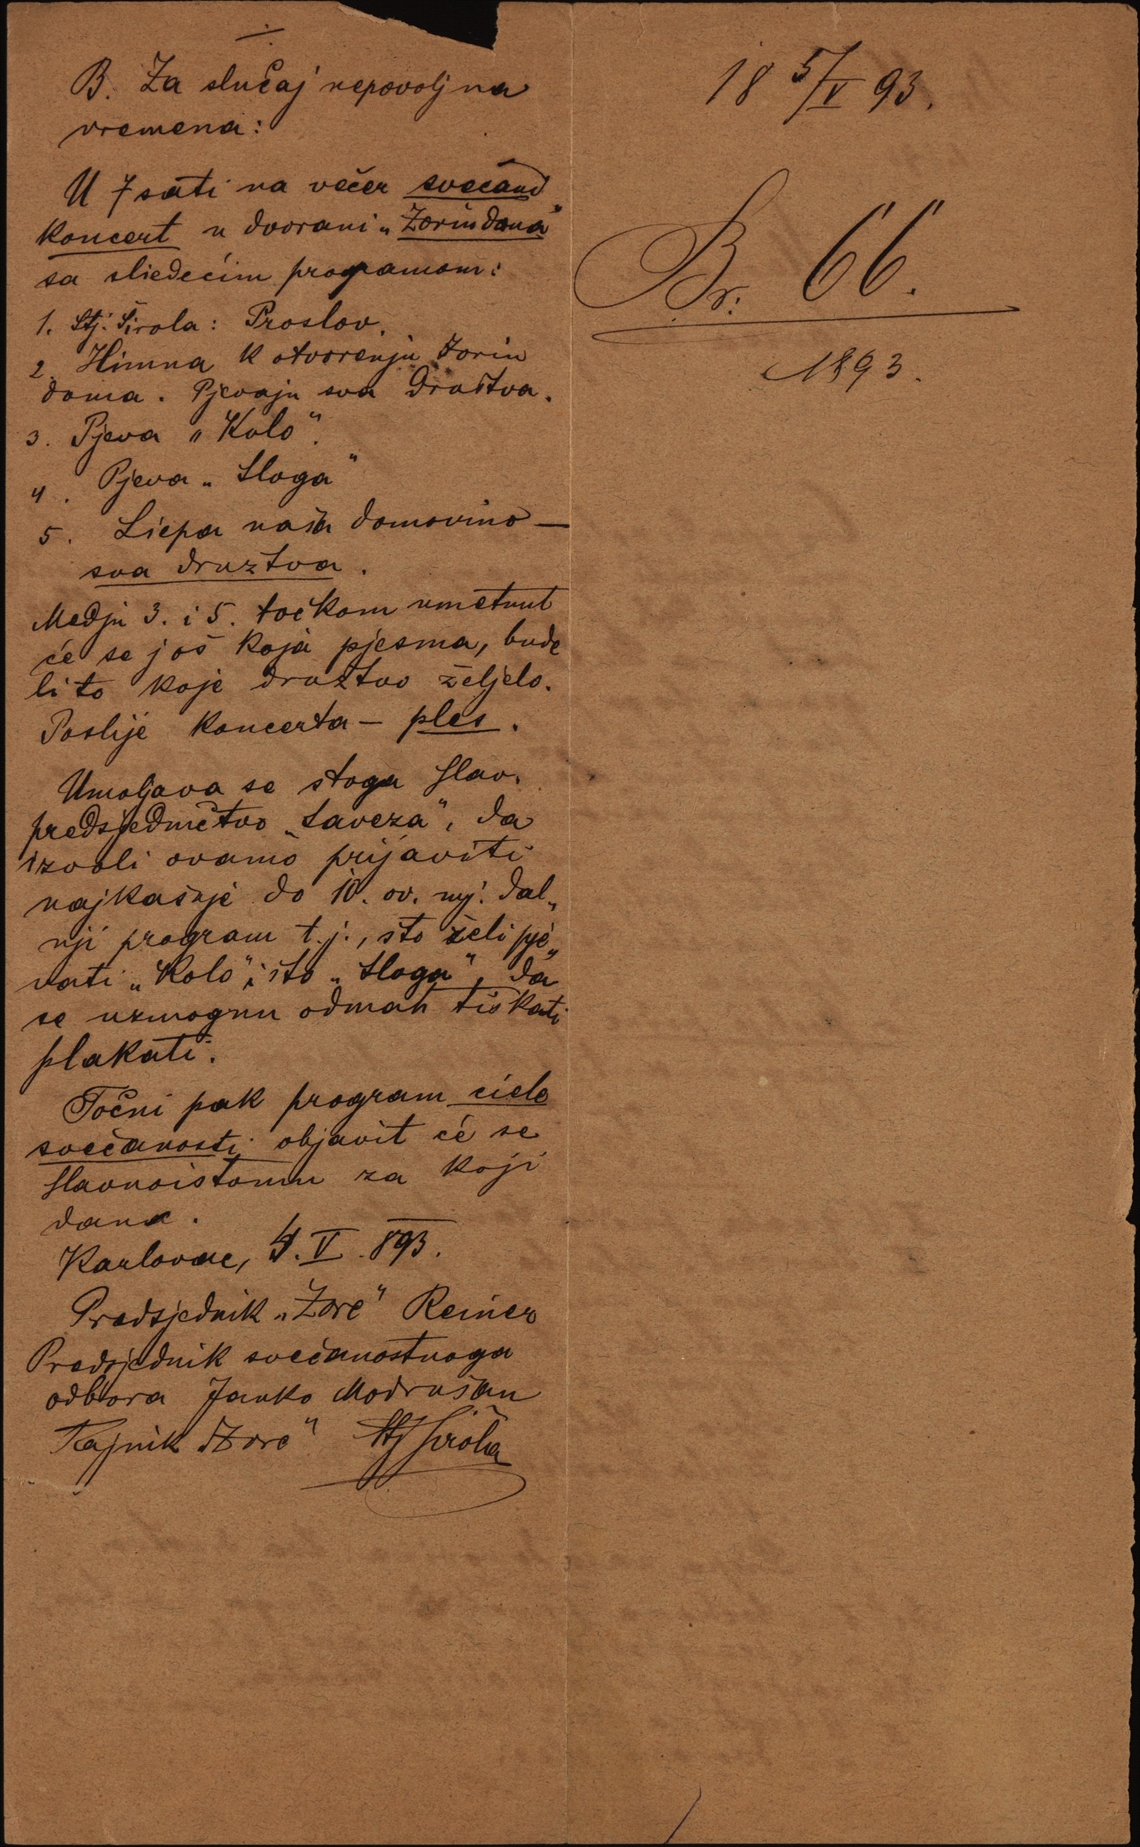 B. Za slučaj nepovoljna
vremena:
U 7 sati na večer svečani
koncert u dvorani „Zorin doma"
sa sliedećim programom:
1. Stj. Širola: Proslov.
2. Himna k otvorenju Zorin
doma. Pjevaju sva družtva.
3. Pjeva „Kolo".
4. Pjeva „Sloga"
5. Liepa naša domovino —
sva družtva.
Medju 3. i 5. točkom umetnut
će se još koja pjesma, bude
li to koje družtvo željelo.
Poslije koncerta — ples.
Umoljava se stoga slav.
predsjedničtvo „Saveza", da
izvoli ovamo prijaviti
najkašnje do 10. ov. mj. dal„
nji program t. j., što želi pje„
vati „Kolo", i što „Sloga", da
se uzmognu odmah tiskati
plakati.
Točni pak program ciele
svečanosti objavit će se
slavnoistomu za koji
dana.
Karlovac, 4. V. 893.
Predsjednik „Zore" Reiner
Predsjednik svečanostnoga
odbora Janko Modrušan
Tajnik „Zore" Stj Širola
18 5/V 93.
Br. 66.
1893.